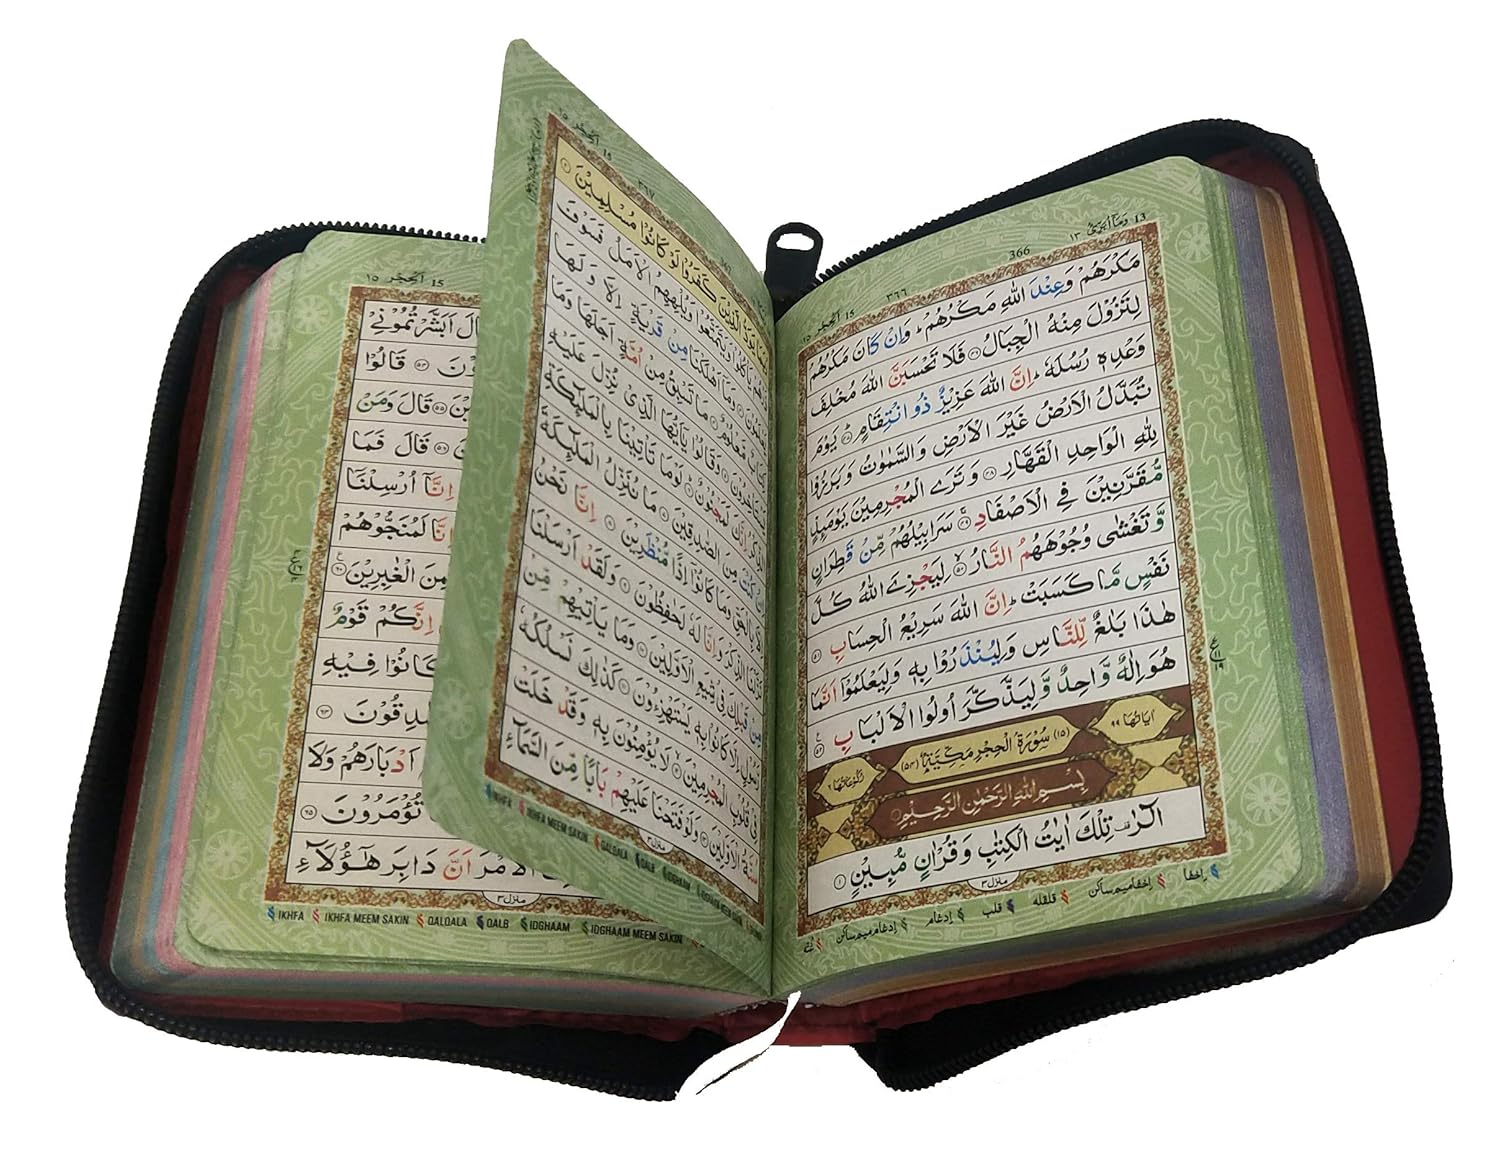 13 وَمَآ اُبَرِّئُ ١٣
366
٣٦٦
15 اَلْحِجْر ١٥
مَكْرَهُمْ وَعِنْدَ اللّٰهِ مَكْرُهُمْ ؕ وَاِنْ كَانَ مَكْرُهُمْ
لِتَزُوْلَ مِنْهُ الْجِبَالُ ﴿٤٦﴾ فَلَا تَحْسَبَنَّ اللّٰهَ مُخْلِفَ
وَعْدِهٖ رُسُلَهٗ ؕ اِنَّ اللّٰهَ عَزِيْزٌ ذُو انْتِقَامٍ ﴿٤٧﴾ يَوْمَ
تُبَدَّلُ الْاَرْضُ غَيْرَ الْاَرْضِ وَالسَّمٰوٰتُ وَبَرَزُوْا
لِلّٰهِ الْوَاحِدِ الْقَهَّارِ ﴿٤٨﴾ وَتَرَى الْمُجْرِمِيْنَ يَوْمَىِٕذٍ
مُّقَرَّنِيْنَ فِي الْاَصْفَادِ ﴿٤٩﴾ سَرَابِيْلُهُمْ مِّنْ قَطِرَانٍ
وَّتَغْشٰى وُجُوْهَهُمُ النَّارُ ﴿٥٠﴾ لِيَجْزِيَ اللّٰهُ كُلَّ
نَفْسٍ مَّا كَسَبَتْ ؕ اِنَّ اللّٰهَ سَرِيْعُ الْحِسَابِ ﴿٥١﴾
هٰذَا بَلٰغٌ لِّلنَّاسِ وَلِيُنْذَرُوْا بِهٖ وَلِيَعْلَمُوْٓا اَنَّمَا
هُوَ اِلٰهٌ وَّاحِدٌ وَّلِيَذَّكَّرَ اُولُوا الْاَلْبَابِ ﴿٥٢﴾
اٰيَاتُهَا ٩٩
(١٥) سُوْرَةُ الْحِجْرِ مَكِّيَّةٌ (٥٤)
رُكُوْعَاتُهَا ٦
بِسْمِ اللّٰهِ الرَّحْمٰنِ الرَّحِيْمِ
الٓرٰ ۫ تِلْكَ اٰيٰتُ الْكِتٰبِ وَقُرْاٰنٍ مُّبِيْنٍ ﴿١﴾
منزل ٣
إخفا إخفا میم ساکن قلقلہ قلب إدغام إدغام میم ساکن غنہ
15 اَلْحِجْر ١٥
٣٦٧
367
رُبَمَا يَوَدُّ الَّذِيْنَ كَفَرُوْا لَوْ كَانُوْا مُسْلِمِيْنَ ﴿٢﴾
ذَرْهُمْ يَاْكُلُوْا وَيَتَمَتَّعُوْا وَيُلْهِهِمُ الْاَمَلُ فَسَوْفَ
يَعْلَمُوْنَ ﴿٣﴾ وَمَآ اَهْلَكْنَا مِنْ قَرْيَةٍ اِلَّا وَلَهَا
كِتَابٌ مَّعْلُوْمٌ ﴿٤﴾ مَا تَسْبِقُ مِنْ اُمَّةٍ اَجَلَهَا وَمَا
يَسْتَاْخِرُوْنَ ﴿٥﴾ وَقَالُوْا يٰٓاَيُّهَا الَّذِيْ نُزِّلَ عَلَيْهِ
الذِّكْرُ اِنَّكَ لَمَجْنُوْنٌ ﴿٦﴾ لَوْمَا تَاْتِيْنَا بِالْمَلٰٓىِٕكَةِ
اِنْ كُنْتَ مِنَ الصّٰدِقِيْنَ ﴿٧﴾ مَا نُنَزِّلُ الْمَلٰٓىِٕكَةَ
اِلَّا بِالْحَقِّ وَمَا كَانُوْٓا اِذًا مُّنْظَرِيْنَ ﴿٨﴾ اِنَّا نَحْنُ
نَزَّلْنَا الذِّكْرَ وَاِنَّا لَهٗ لَحٰفِظُوْنَ ﴿٩﴾ وَلَقَدْ اَرْسَلْنَا
مِنْ قَبْلِكَ فِيْ شِيَعِ الْاَوَّلِيْنَ ﴿١٠﴾ وَمَا يَاْتِيْهِمْ مِّنْ
رَّسُوْلٍ اِلَّا كَانُوْا بِهٖ يَسْتَهْزِءُوْنَ ﴿١١﴾ كَذٰلِكَ نَسْلُكُهٗ
فِيْ قُلُوْبِ الْمُجْرِمِيْنَ ﴿١٢﴾ لَا يُؤْمِنُوْنَ بِهٖ وَقَدْ خَلَتْ
سُنَّةُ الْاَوَّلِيْنَ ﴿١٣﴾ وَلَوْ فَتَحْنَا عَلَيْهِمْ بَابًا مِّنَ السَّمَآءِ
منزل ٣
IKHFA IKHFA MEEM SAKIN QALQALA QALB IDGHAAM IDGHAAM MEEM SAKIN
15 اَلْحِجْر ١٥
اَبَشَّرْتُمُوْنِيْ
قَالُوْا
قَالَ وَمَنْ
قَالَ فَمَا
اِنَّآ اُرْسِلْنَآ
اِنَّا لَمُنَجُّوْهُمْ
مِنَ الْغٰبِرِيْنَ ﴿٦٠﴾
اِنَّكُمْ قَوْمٌ
كَانُوْا فِيْهِ
لَصٰدِقُوْنَ ﴿٦٤﴾
اَدْبَارَهُمْ وَلَا
تُؤْمَرُوْنَ ﴿٦٥﴾
الْاَمْرَ اَنَّ دَابِرَ هٰٓؤُلَآءِ
منزل ٣
IKHFA IKHFA MEEM SAKIN QALQALA QALB IDGHAAM IDGHAAM MEEM SAKIN